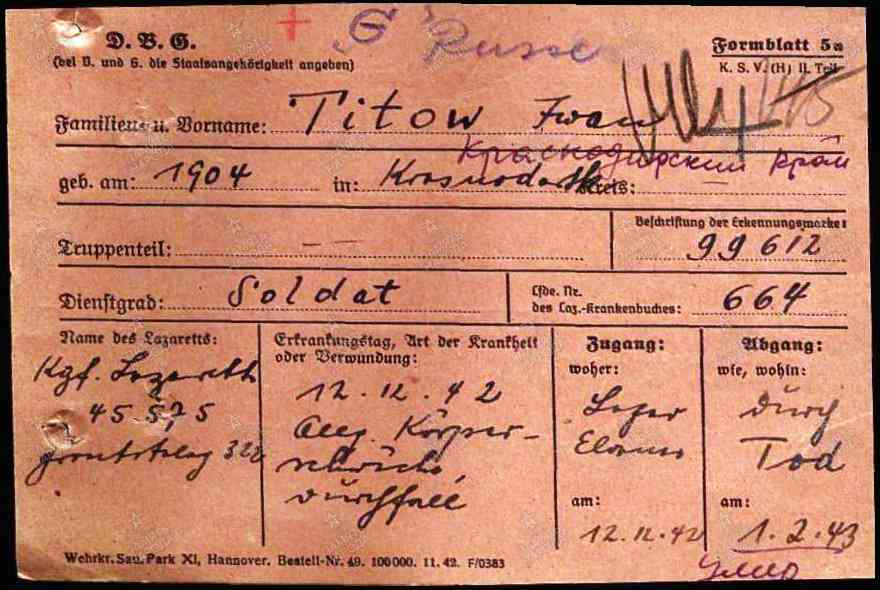 D. V. G.
(bei V. und G. die Staatsangehörigkeit angeben)
Russe
Formblatt 5a
K. S. V. (H) II. Teil
Familien- u. Vorname: Titow Iwan
Краснодарский край
geb. am: 1904 in: Krasnodarsk Kreis: —
Beschriftung der Erkennungsmarke:
Truppenteil: — — 99612
Dienstgrad: Soldat
Lfde. Nr.
des Laz.-Krankenbuches: 664
Name des Lazaretts:
Kgf. Lazarett
Frontstalag 322
Erkrankungstag, Art der Krankheit
oder Verwundung:
12.12.42
Allg. Körper-
schwäche
Durchfall
Zugang:
woher:
Lager
am:
12.12.42
Abgang:
wie, wohin:
durch
Tod
am:
1.2.43
умер
Wehrkr. San. Park XI, Hannover. Bestell-Nr. 49. 100000. 11. 42. F/0383